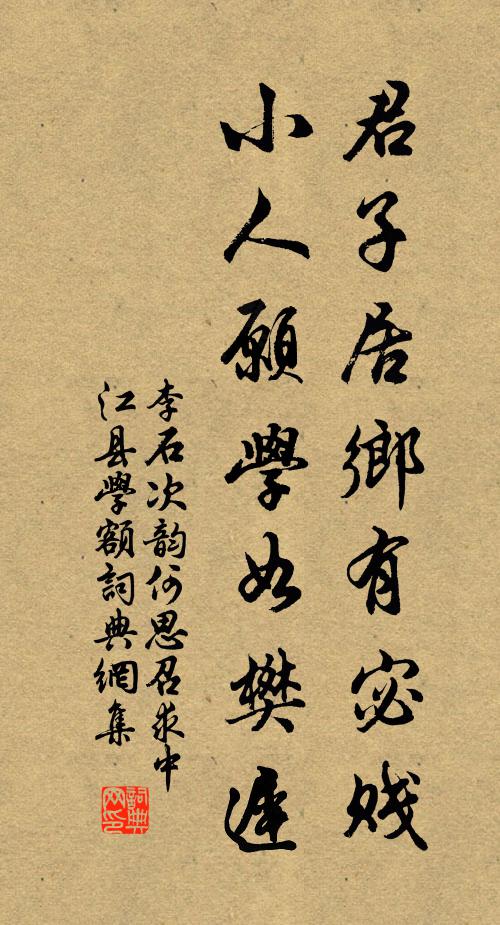 君子居鄉有宓賤
小人願學如樊遲
李石次韵何思召求中
江县學額詞典網集
詞典网印